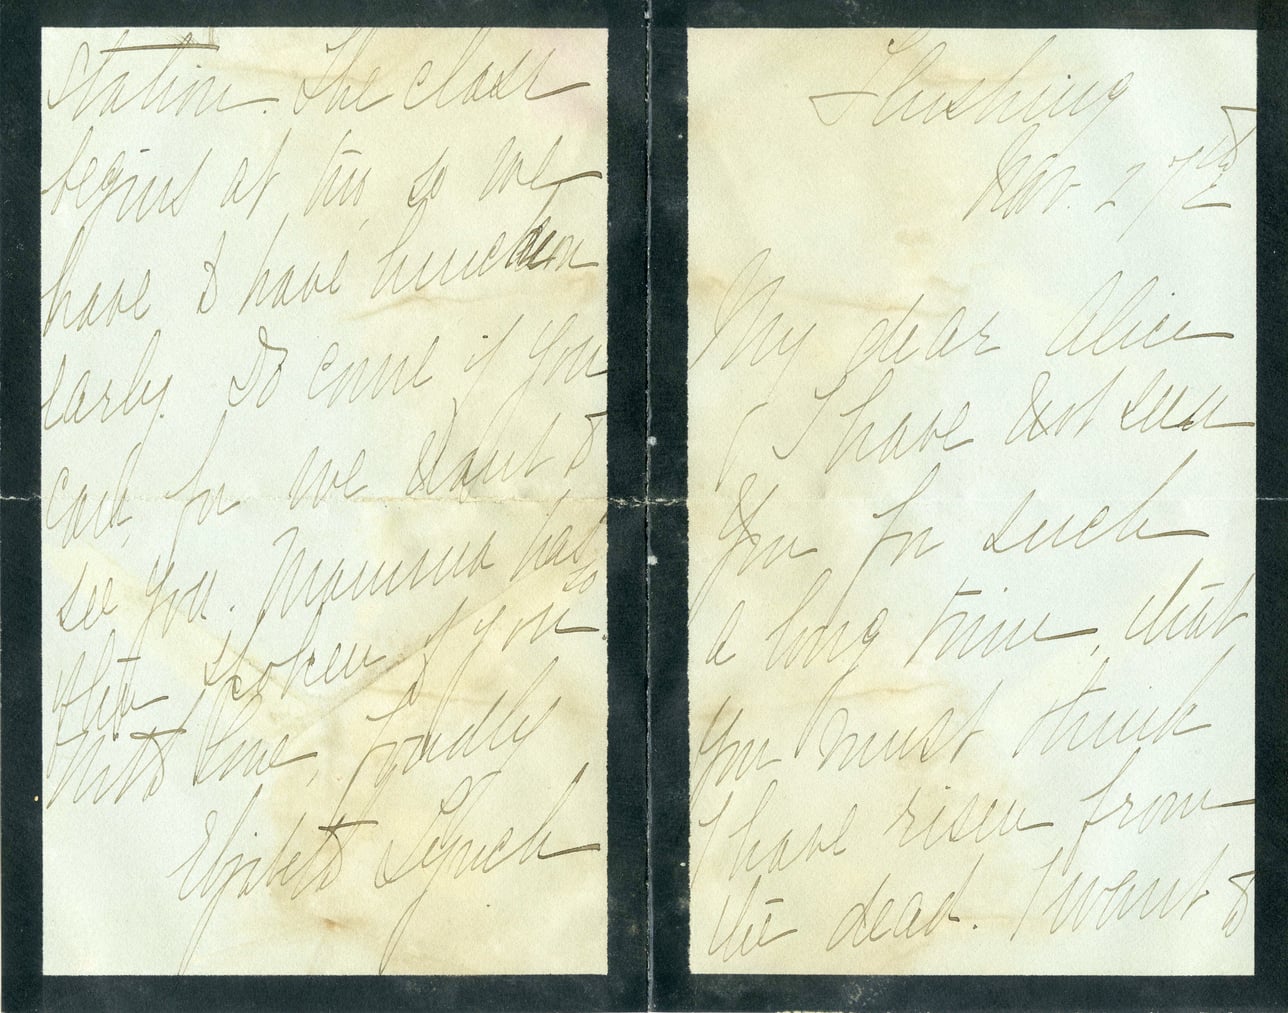 Flushing
Nov. 27th
My dear Alice
I have not seen
you for such
a long time, that
you must think
I have risen from
the dead. I want to
Station. The class
begins at two, so we
have I have luncheon
early. Do come if you
can, for we want to
see you. Mamma has
so
often spoken of you.
With love, fondly
Elizabeth Lynch